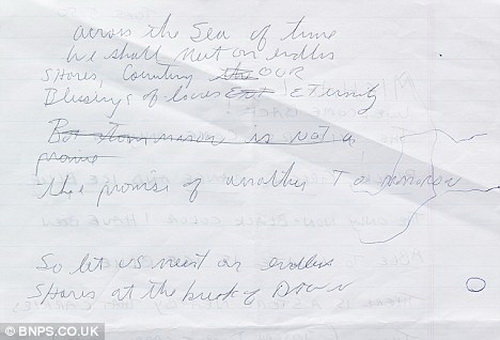 across the Sea of time
We shall Meet on endless
SHORES, Counting the OUR
Blessings of loves ETERNITY
But Tommorow is Not a
promise
the promise of another Tomorrow
THE ONLY NON-BLACK COLOR I HAVE BEEN
So let us meet on endless
SHORES at the break of DAWN
© BNPS.CO.UK